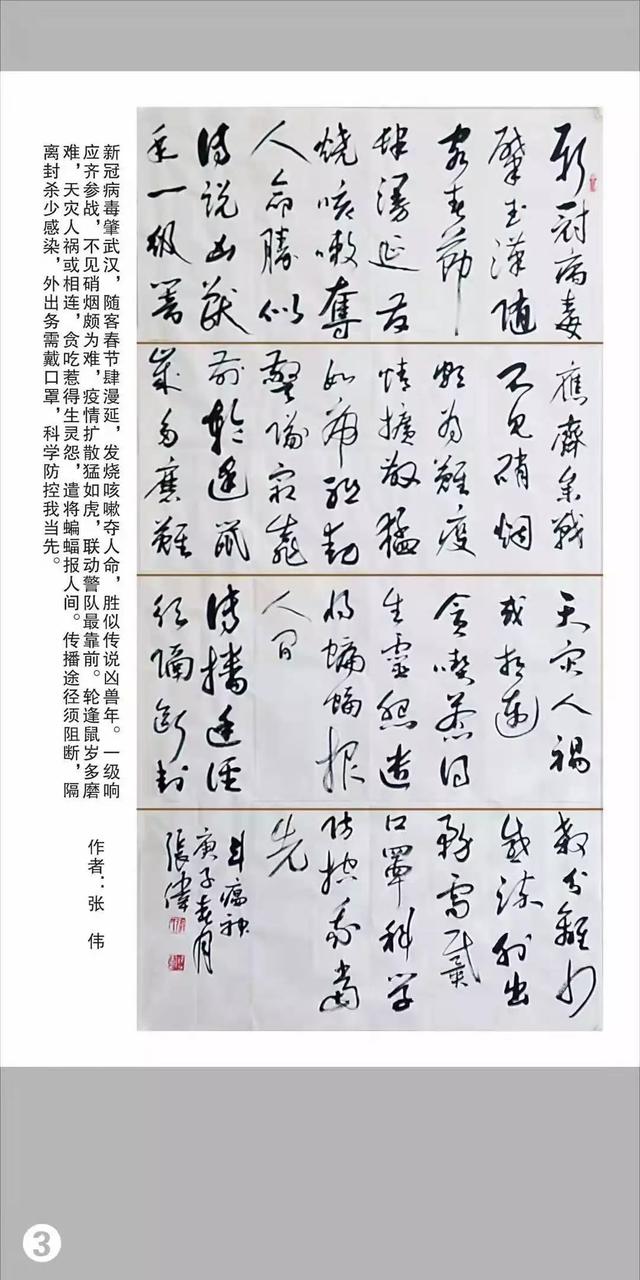 新冠病毒
肇武漢随
客春節
肆漫延發
燒咳嗽奪
人命勝似
傳説凶獸
年一級響
應齊参戰
不見硝烟
頗為難疫
情擴散猛
如虎聯動
警隊最靠
前輪逢鼠
歲多磨難
天灾人禍
或相連
貪喫惹得
生靈怨遣
将蝙蝠报
人間
傳播途徑
須隔斷封
殺分離少
感染外出
務需戴
口罩科学
防控我當
先
斗瘟神
庚子春月
張偉
新冠病毒肇武汉，随客春节肆漫延，发烧咳嗽夺人命，胜似传说凶兽年。一级响
应齐参战，不见硝烟颇为难，疫情扩散猛如虎，联动警队最靠前。轮逢鼠岁多磨
难，天灾人祸或相连，贪吃惹得生灵怨，遣将蝙蝠报人间。传播途径须阻断，隔
离封杀少感染，外出务需戴口罩，科学防控我当先。
作者：张 伟
3